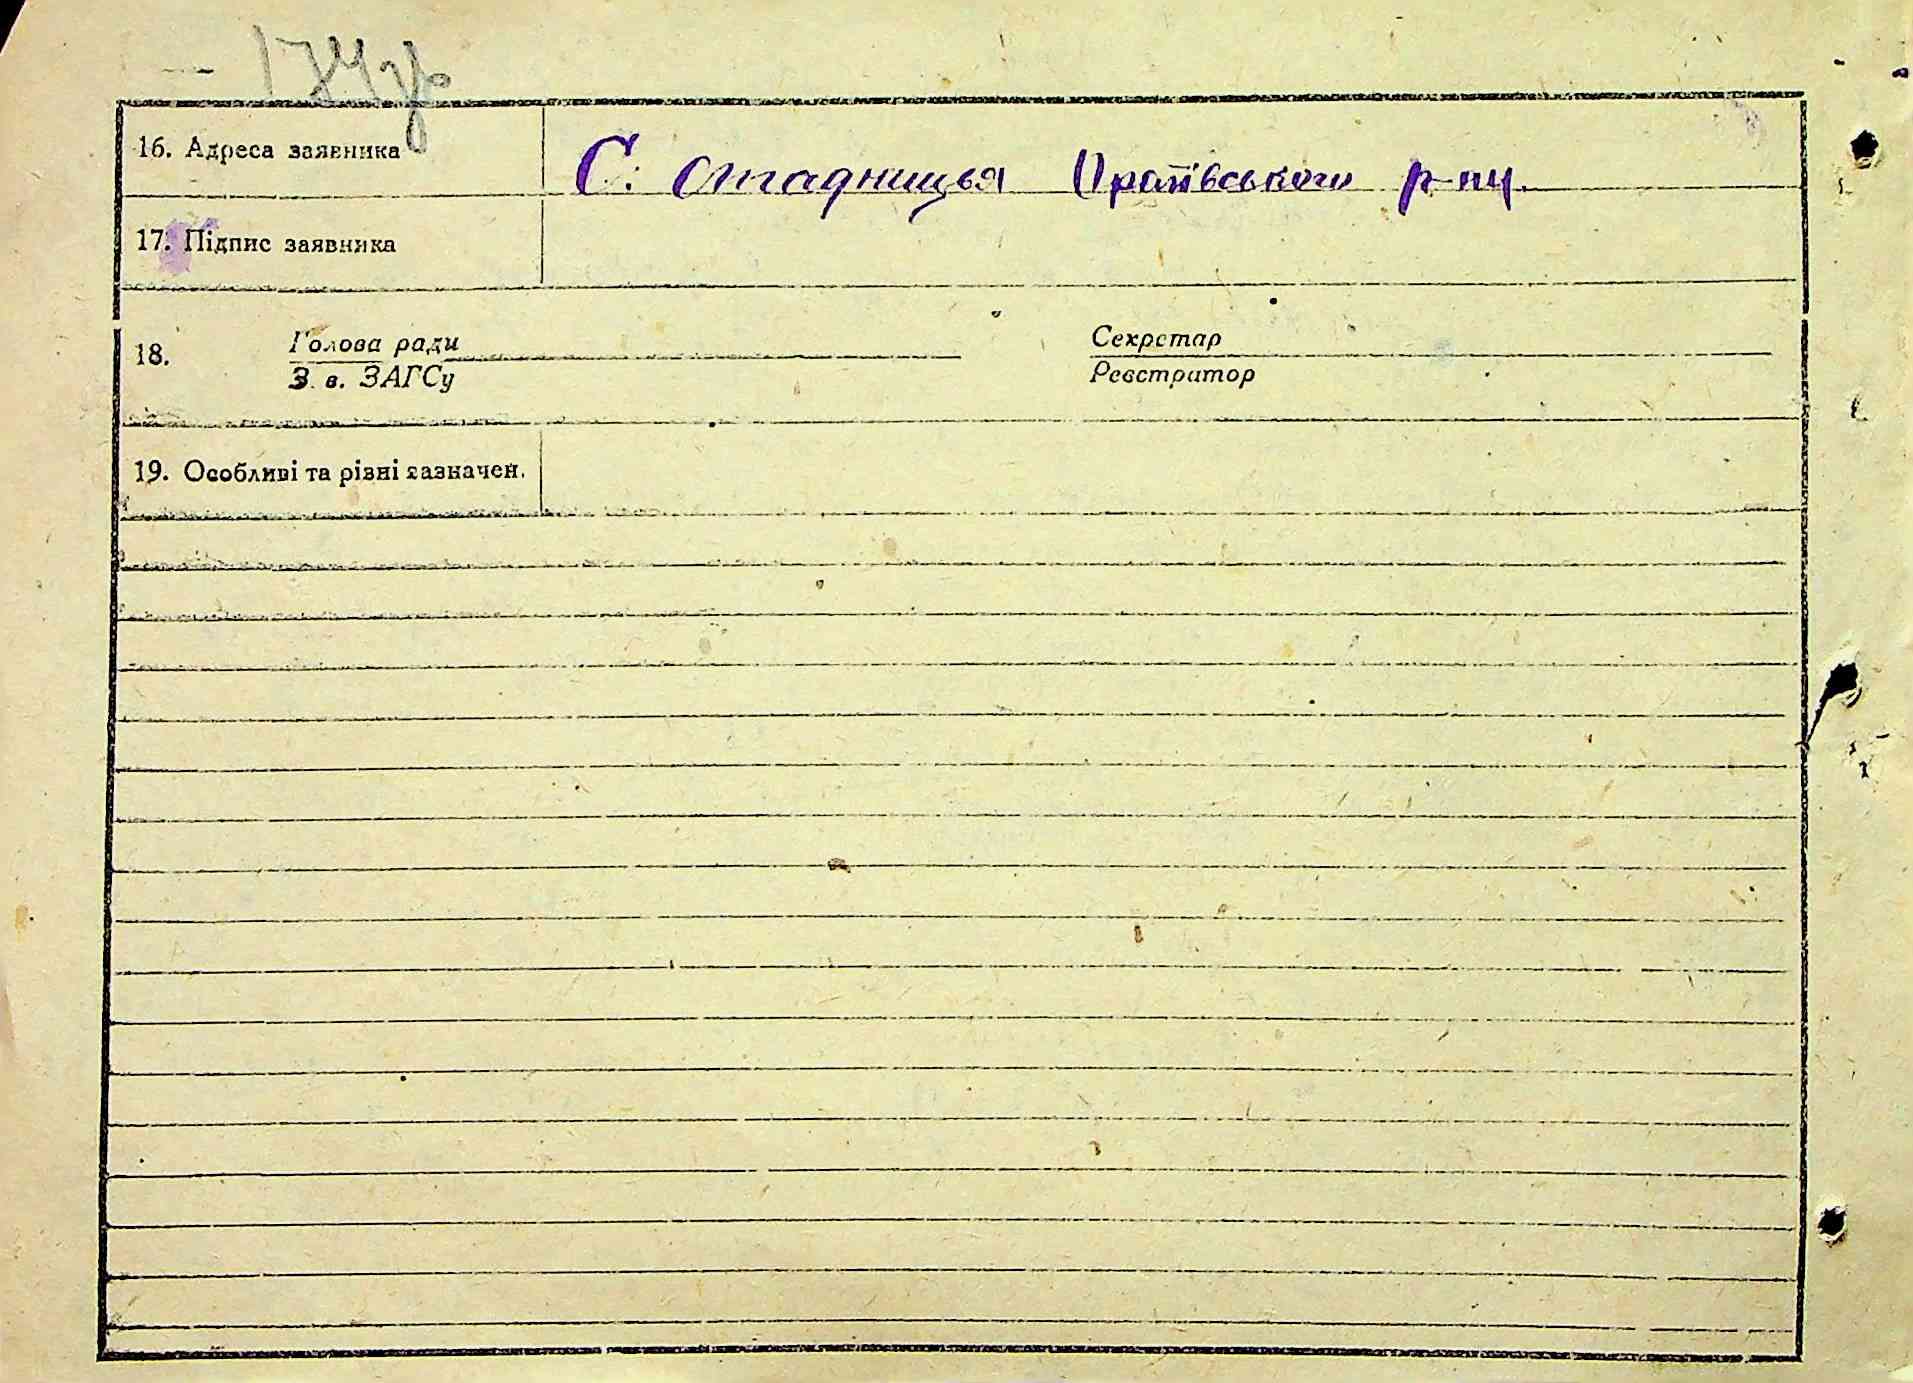 174зв
16. Адреса заявника С. Стадниця Ораківського р-ну.
17. Підпис заявника
18. Голова ради Секретар
З. в. ЗАГСу Реєстратор
19. Особливі та різні зазначен.